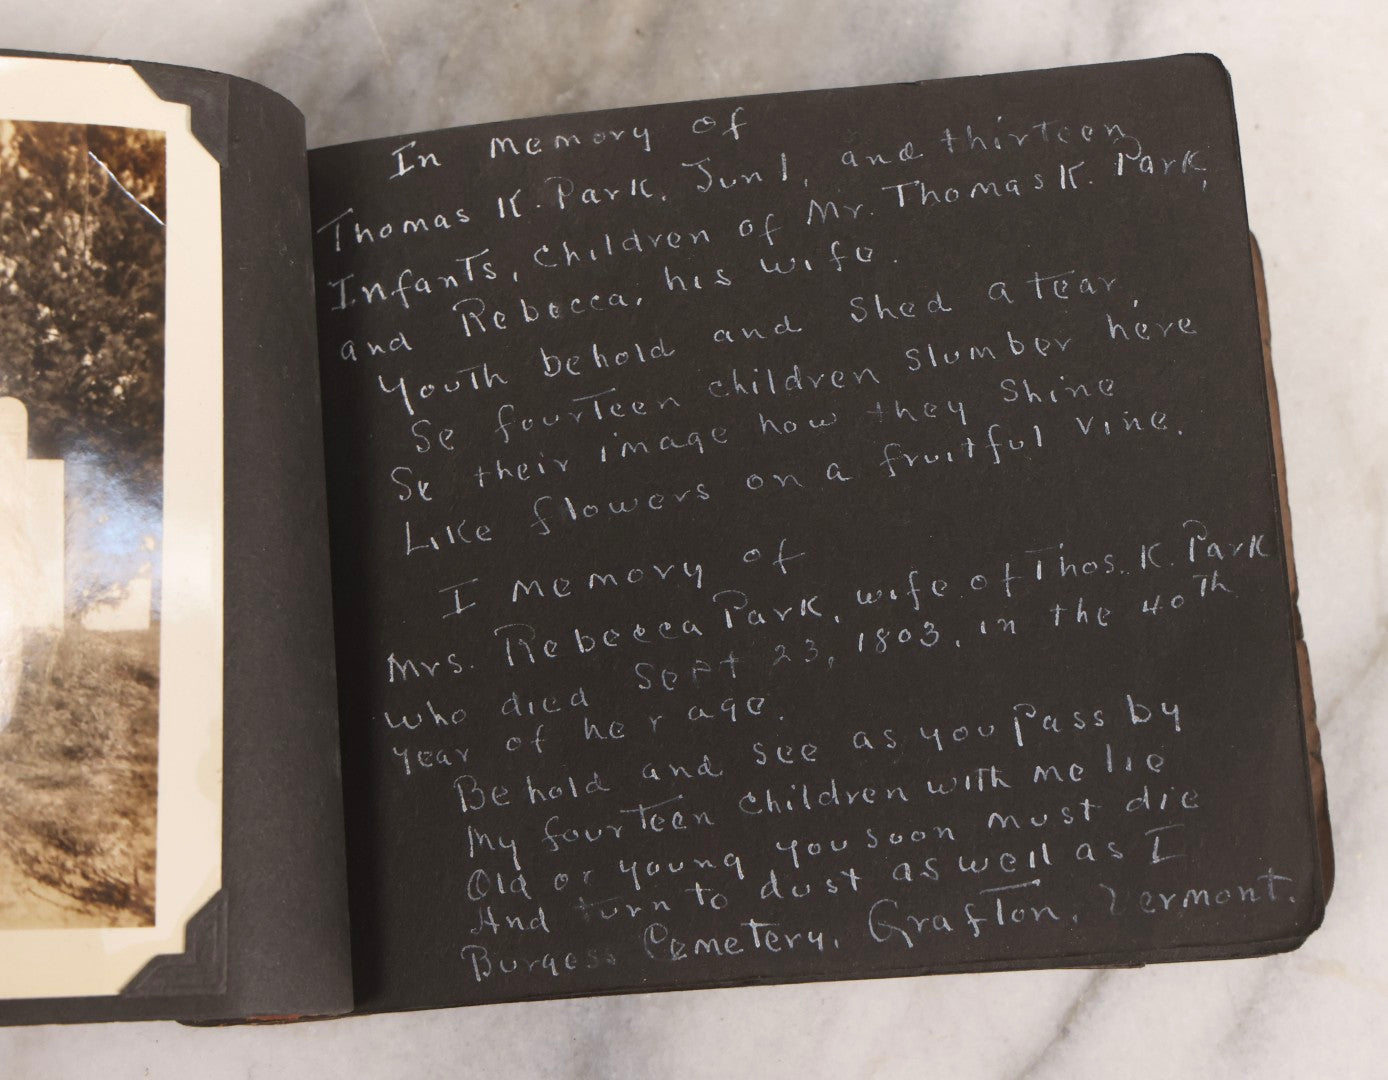 In memory of
Thomas K. Park. Jun1, and thirteen
Infants, children of Mr. Thomas K. Park,
and Rebecca, his wife.
Youth behold and shed a tear,
Se fourteen children slumber here
Se their image how they shine
Like flowers on a fruitful vine.
I memory of
Mrs. Rebecca Park, wife of Thos. K. Park
who died Sept 23, 1803, in the 40th
year of her age.
Behold and see as you pass by
My fourteen children with me lie
Old or young you soon must die
And turn to dust as well as I
Burgess Cemetery, Grafton, Vermont.